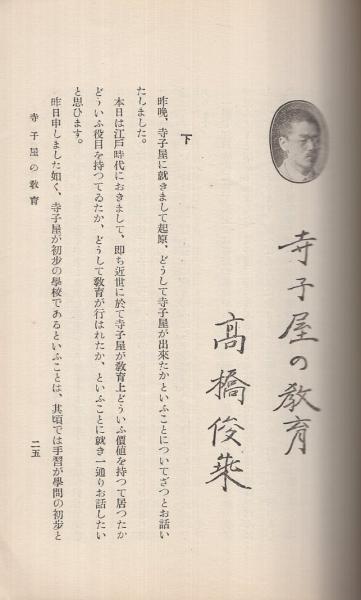 寺子屋の教育
高橋俊乗
下
昨晩、寺子屋に就きまして起原、どうして寺子屋が出來たかといふことについてざつとお話い
たしました。
本日は江戸時代におきまして、即ち近世に於て寺子屋が教育上どういふ價値を持つて居つたか
どういふ役目を持つてゐたか、どうして教育が行はれたか、といふことに就き一通りお話したい
と思ひます。
昨日申しました如く、寺子屋が初步の學校であるといふことは、其頃では手習が學問の初步と
寺子屋の教育
二五